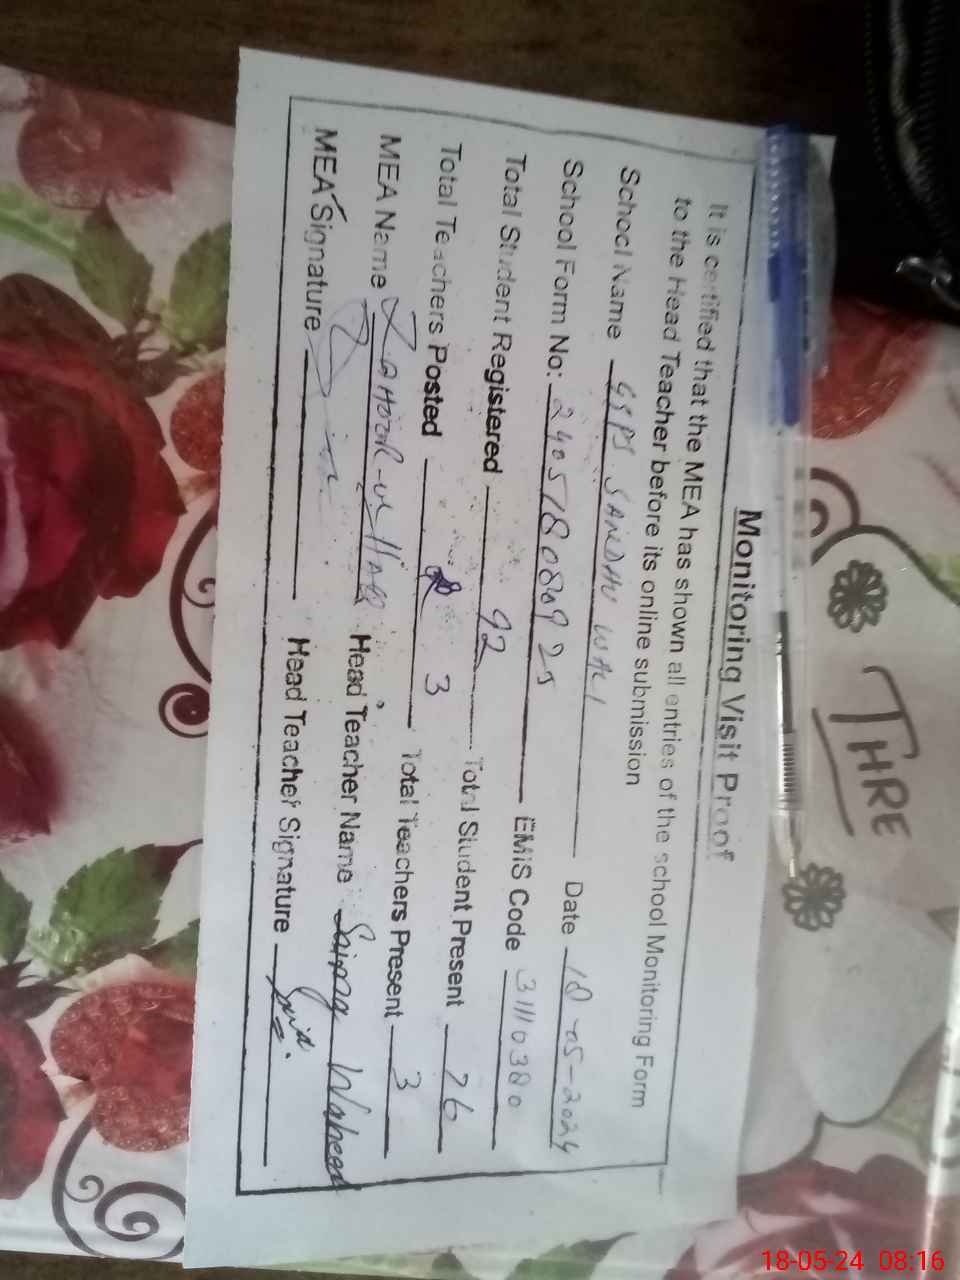 THRE
Monitoring Visit Proof
It is certified that the MEA has shown all entries of the school Monitoring Form
to the Head Teacher before its online submission
School Name GGPS SANDHU WALI Date 18-05-2024
School Form No: 2405180809 25 EMIS Code 31110380
Total Student Registered 92 Total Student Present 76
Total Teachers Posted 3 Total Teachers Present 3
MEA Name ZAHOOR-UL-HAQ Head Teacher Name Saima Waheed
MEA Signature Head Teacher Signature
18-05-24 08:16